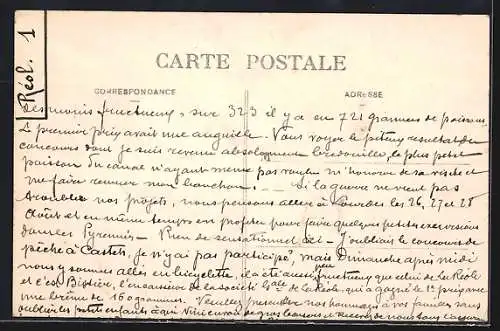 Réol. 1
CARTE POSTALE
CORRESPONDANCE
ADRESSE
des moins fructueux, sur 323 il y a eu 721 grammes de poissons
Le premier prix avait une anguille. Vous voyez le piteux resultat du
concours dont je suis revenu absolument bredouille, le plus petit
poisson du canal n'ayant même pas voulu m'honorer de sa visite et
me faire remuer mon bouchon. — Si la guerre ne vient pas
troubler nos projets, nous pensons aller à Lourdes les 26, 27 et 28
Août et en même temps en profiter pour faire quelques petites excursions
dans les Pyrénées — Rien de sensationnel ici — J'oubliais le concours de
pêche à Castets, je n'ai pas participé, mais Dimanche après midi
nous y sommes allés en bicyclette, il a été aussi fructueux que celui de La Réole
et c'est l'encaisseur de la société G ale de La Réole, qui a gagné le 1er prix avec
une brème de 160 grammes. Veuillez présenter nos hommages à vos familles sans
oublier les petits enfants à qui nous de gros baisers et